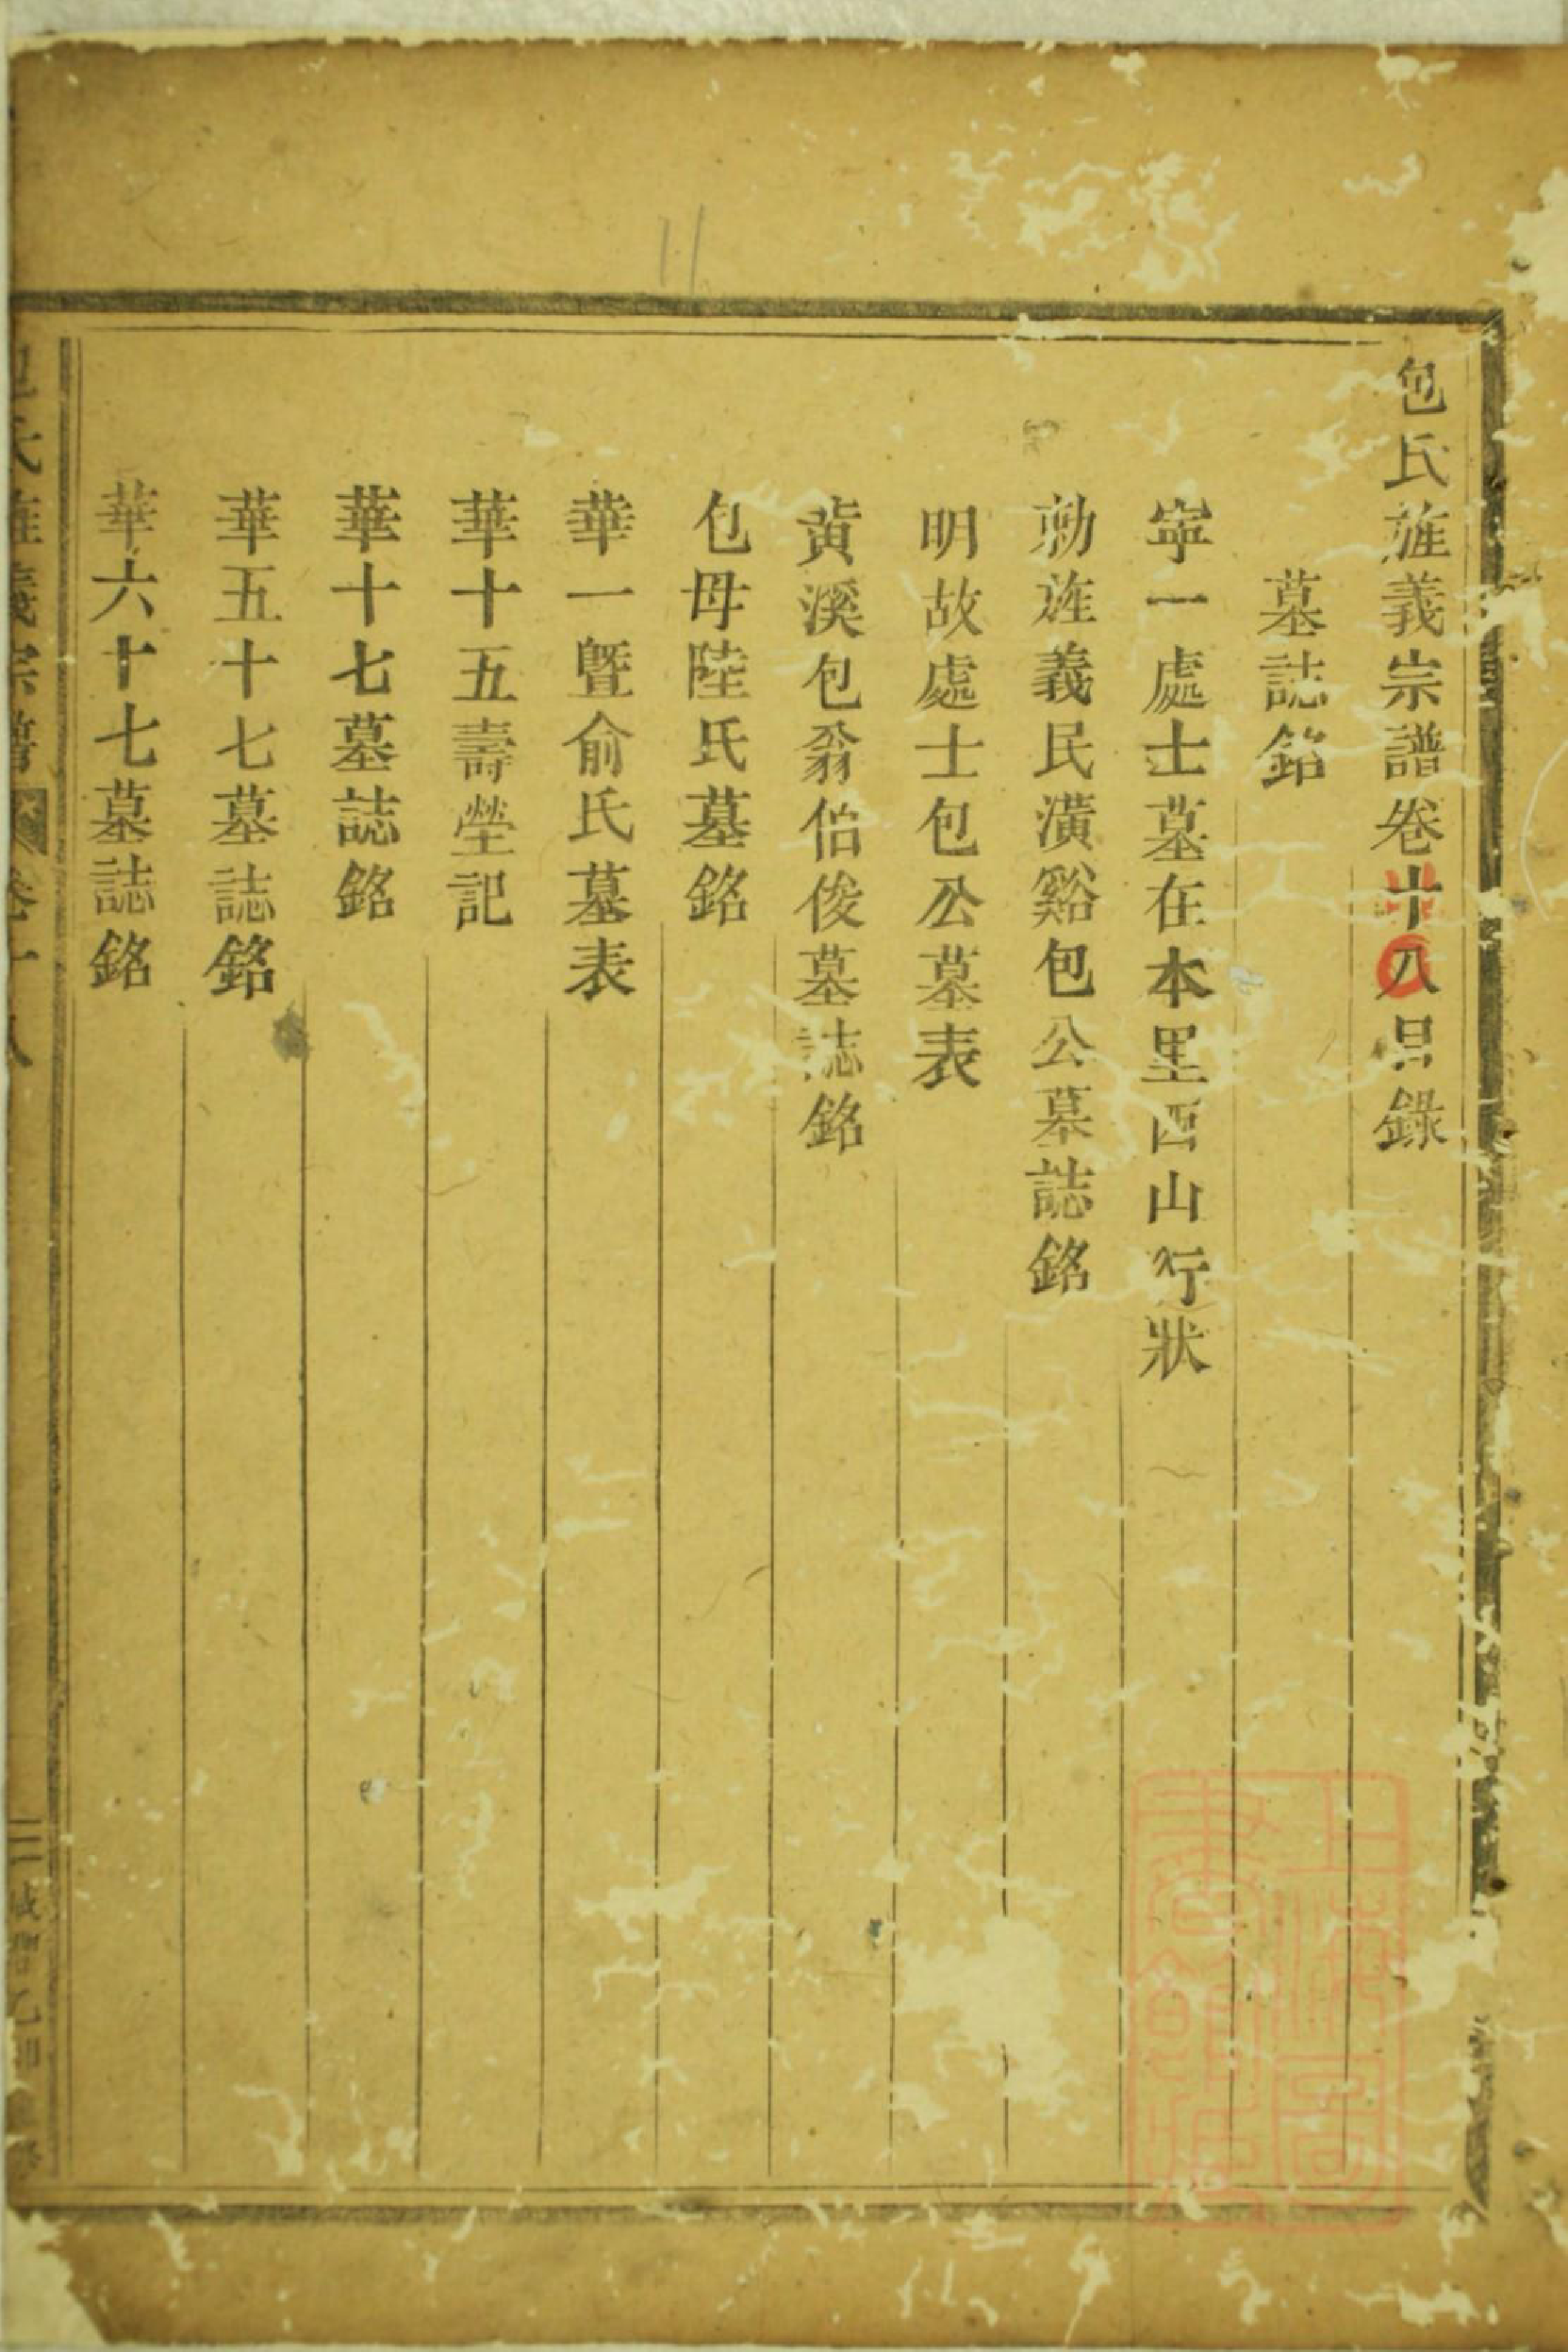 包氏旌義宗譜卷十八目錄
墓誌銘
寜一處士墓在本里西山行狀
勅旌義民潢谿包公墓誌銘
明故處士包公墓表
黄溪包翁伯俊墓誌銘
包母陸氏墓銘
華一暨俞氏墓表
華十五壽塋記
華十七墓誌銘
華五十七墓誌銘
華六十七墓誌銘
包氏旌義宗譜 卷十八
上海圖書館藏